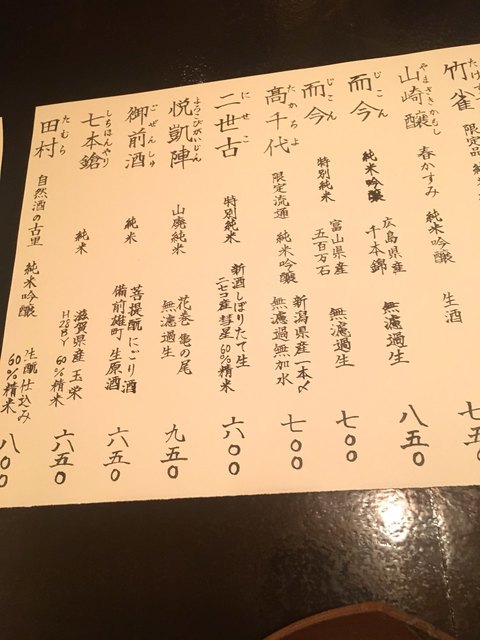 竹雀 限定品
生酒
七五
山崎醸 やまざきかもし 春かすみ 純米吟醸
八五〇
而今 じこん 純米吟醸 広島県産 千本錦 無濾過生
七〇〇
而今 じこん 特別純米 富山県産 五百万石 無濾過生
七〇〇
髙千代 たかちよ 限定流通 純米吟醸 新潟県産一本〆 無濾過無加水
二世古 にせこ 特別純米 新酒しぼりたて生 ニセコ産彗星60%精米 六〇〇
悦凱陣 よろこびがいじん 山廃純米 花巻 亀の尾 無濾過生 九五〇
御前酒 ごぜんしゅ 純米 菩提酛 にごり酒 備前雄町 生原酒 六五〇
七本鎗 しちほんやり 純米 滋賀県産 玉栄 H26BY 60%精米 六五〇
田村 たむら 自然酒の古里 純米吟醸 生酛仕込み 60%精米 八〇〇